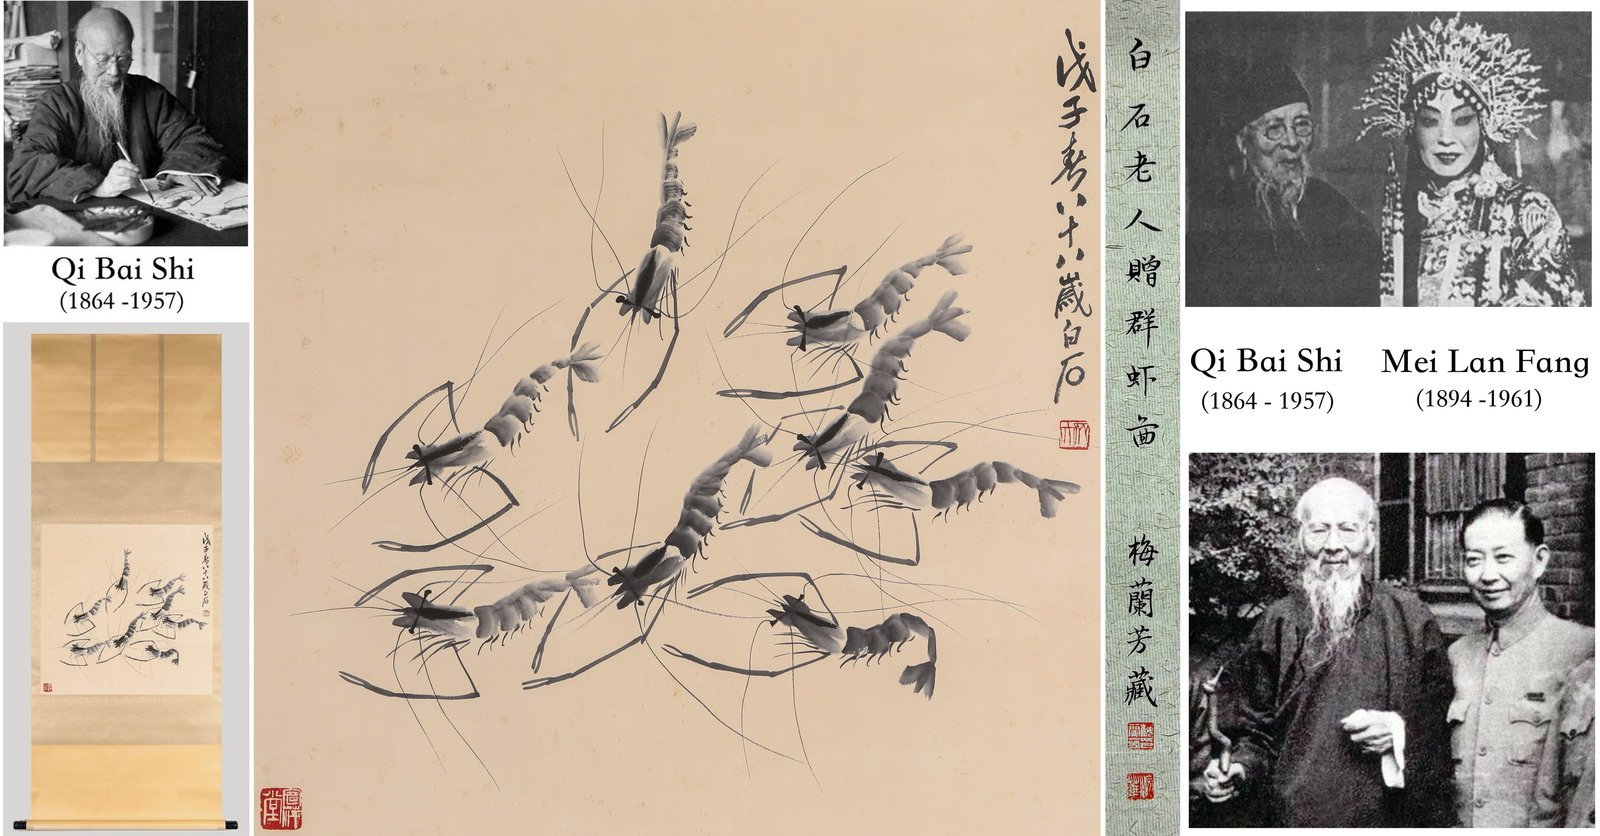 Qi Bai Shi
(1864 -1957)
戊子春八十八歲白石
白石老人贈群虾啚
梅蘭芳藏
Qi Bai Shi
(1864 - 1957)
Mei Lan Fang
(1894 -1961)